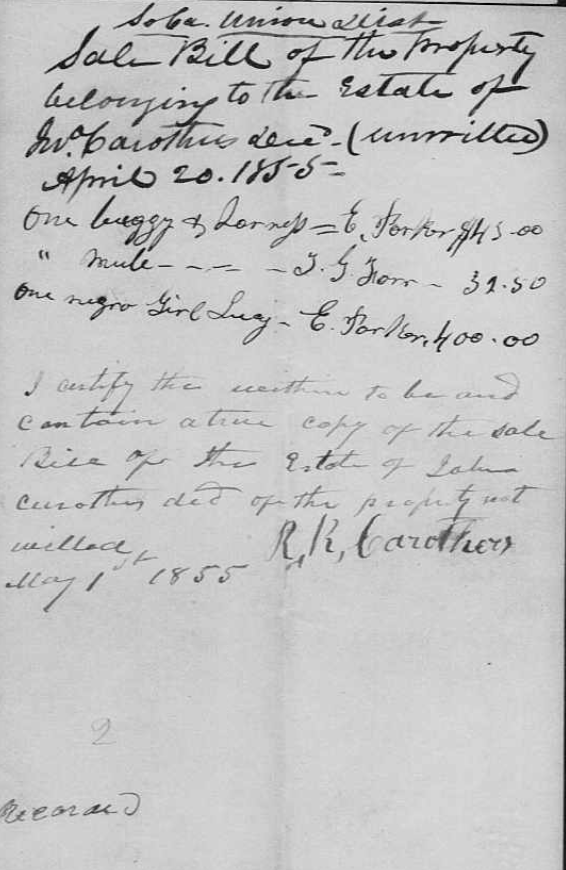 So Ca. Union Dist
Sale Bill of the Property
belonging to the Estate of
Jno. Carothers Decd. (unwilled)
April 20. 1855 -
One buggy & Harness = E. Parker $45.00
" mule - - - - T. G. Farr - 32.50
One negro Girl Lucy - E. Parker, 400.00
I certify the within to be and
contain a true copy of the sale
Bill of the Estate of John
Carothers decd of the property not
willed
R, K, Carothers
May 1st 1855
2
Record